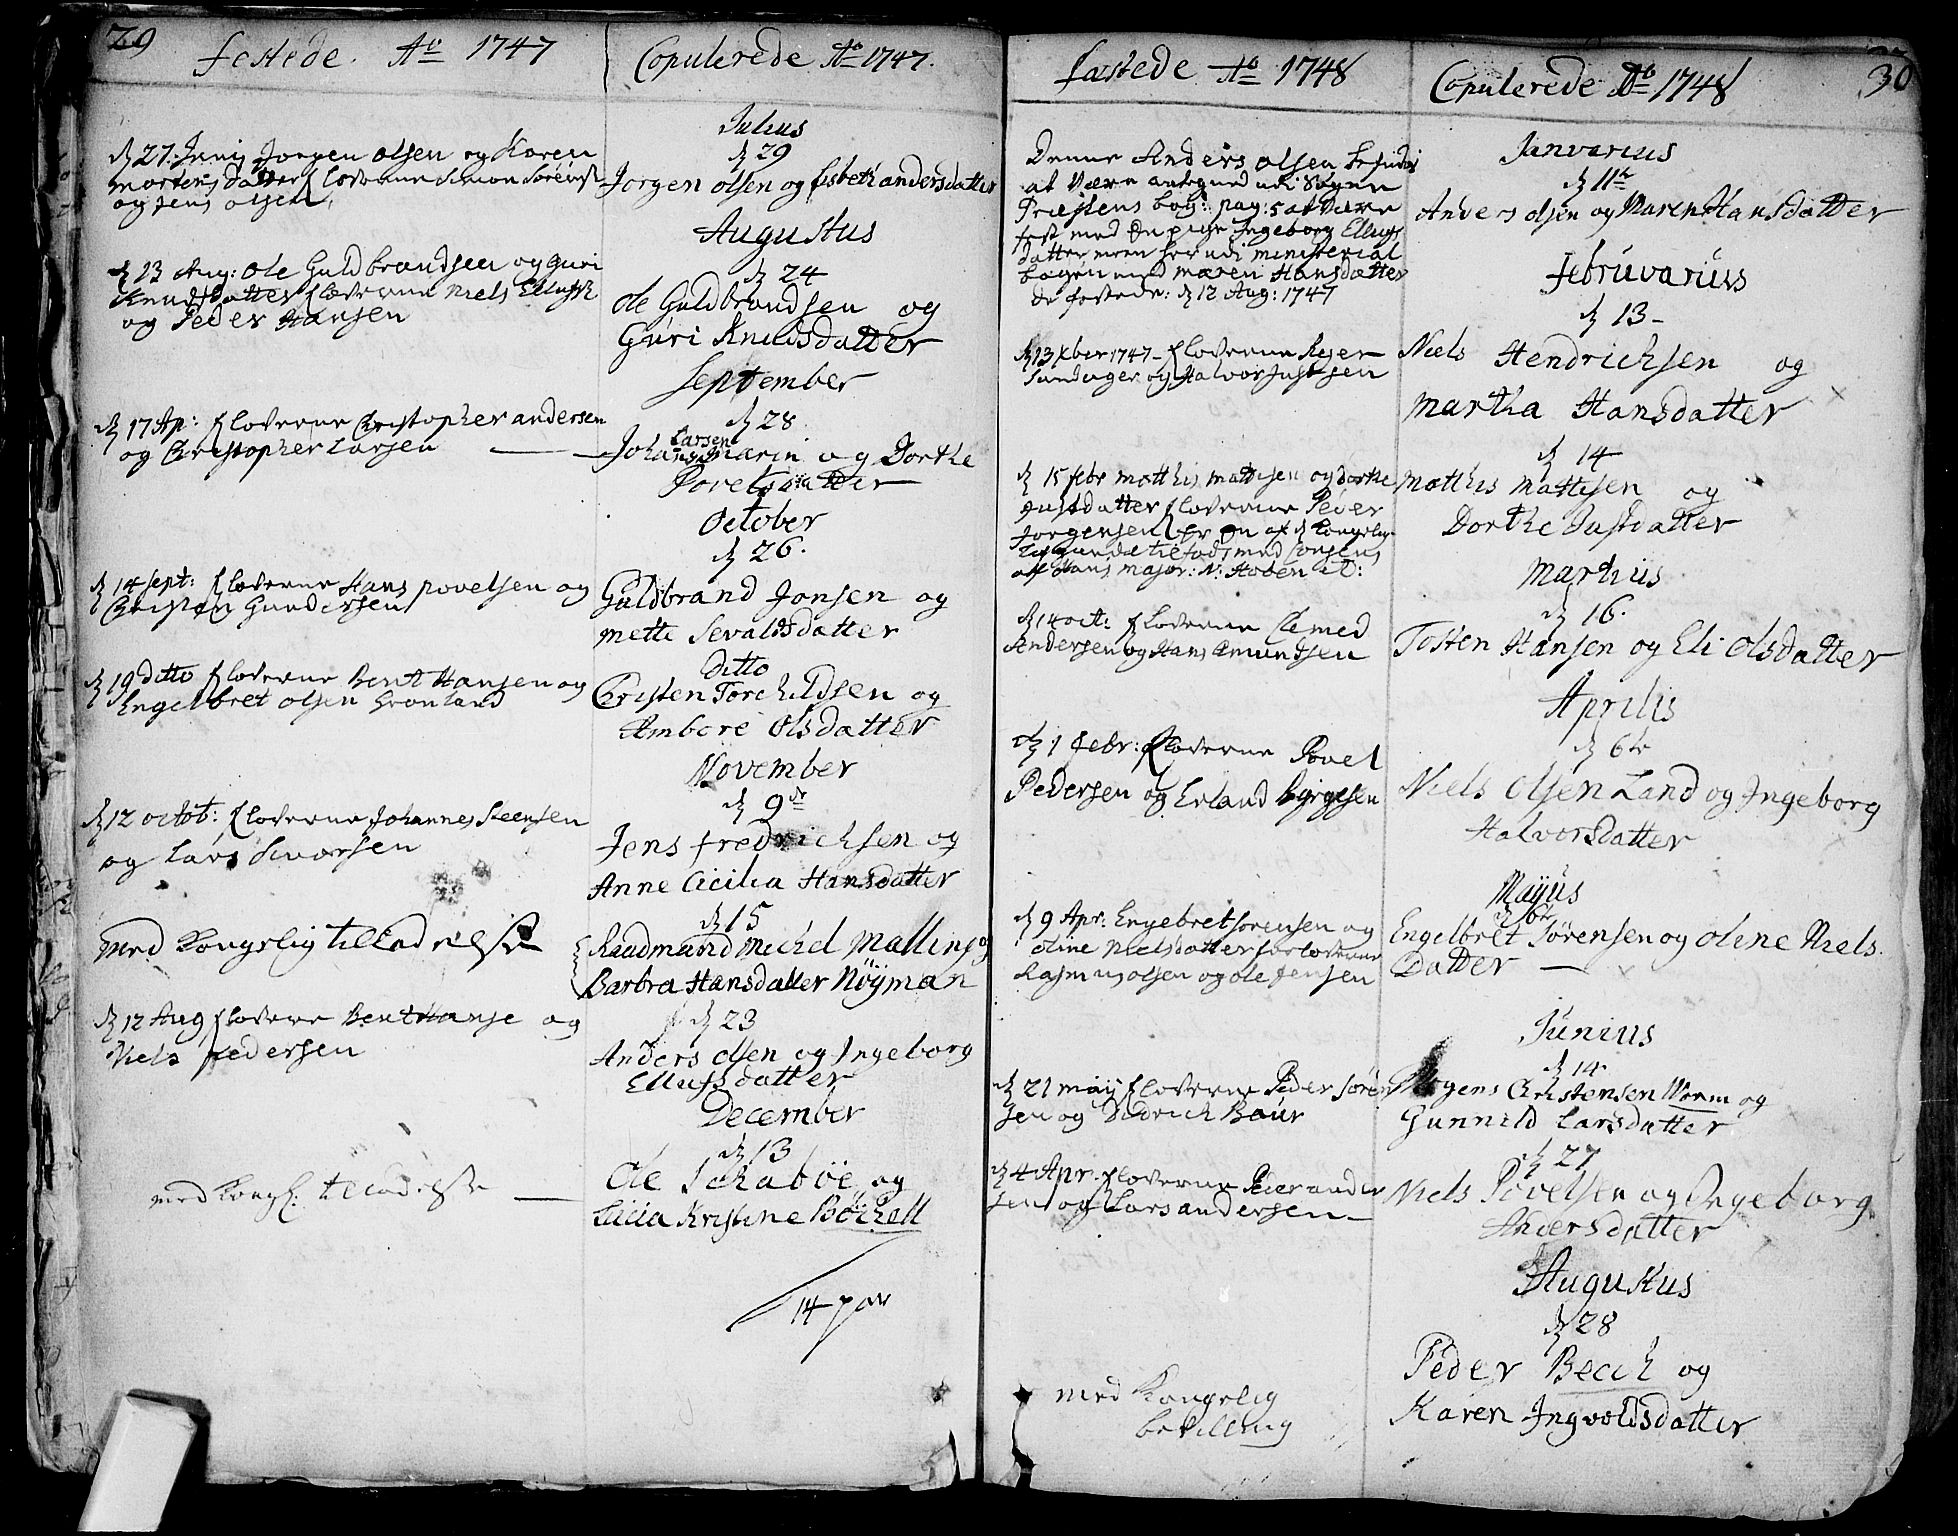 29
festede. Ao 1747
d 27. Junij Jorgen olsen og Karen
Mortens datter floverne Simon Sörens:
og Jens olsen,
d 13 Aug: ole Guldbrandsen og Guri
Knudsdatter floverne Niels Ellefs:
og Peder Hansen
d 17 Ap: floverne Christopher andersen
og Christopher Larsen
d 14 sept: floverne Hans povelsen og
Christen Gundersen
d 19 ditto floverne Bent Hansen og
Engelbret olsen Gronland
d 12 octob: floverne Johannes Steensen
og Lars Svarsen
med Kongelig tilladelse
d 12 Aug floverne Bent Hanse og
Niels Pedersen
med Kongl: tilladelse
Copulerede Ao 1747.
Julius
d 29
Jorgen olsen og Lisbeth andersdatter
Augustus
d 24
ole Guldbrandsen og
Guri Knudsdatter
September
d 28
Larsen
Johan Marin og Dorthe
Povelsdatter
October
d 26.
Guldbrand Jonsen og
Mette Sevaldsdatter
Ditto
Christen Torchildsen og
Ambore Olsdatter
November
d 9de
Jens fredrichsen og
Anne Cicilia Hansdatter
d 15
Raadmand Michel Malling og
Barbra Hansdatter Nöyman
d 23
Anders olsen og Ingeborg
Ellufsdatter
December
d 13
Ole Schaböe og
Licia Kristine Böchell
14 par
fæstede Ao 1748
Denne Anders olsen befindes
at være antegned udi Sogne
Præstens bog: pag: 5 at være
fest med en pige Ingeborg Ellufs
Datter men her udi ministerial
bogen med Maren Hansdatter
de festede: d 12 Aug: 1747
d 13 xber 1747 - floverne Rejer
Sandager og Halvor Justsen
d 15 febr Matthis Mattesen og dorthe
Justdatter floverne Peder
Jorgensen
af Hans Major: N:
d 14 oct: floverne Clemed
Andersen og Hans Amundsen
d 1 febr: floverne Povel
Pedersen og Erland Byrgesen
d 9 Apr: Engebret sorensen og
oline Nielsdatter forloverne
Rasmus olsen og ole Jensen
d 21 may floverne Peder sören
sen og Didrich Baur
d 4 Apr. floverne Peder ander
sen og Lars andersen
med Kongelig
bevilling
30
Copulerede Ao 1748
Janvarius
d 11te
Anders olsen og Maren Hansdatter
februvarius
d 13 -
Niels Hendrichsen og
Martha Hansdatter
d 14
Matthis Mattisen og
Dorthe Justdatter
Martius
d 16.
Tosten Hansen og Eli olsdatter
Aprilis
d 6te
Niels olsen Land og Ingeborg
Halvorsdatter
Mayus
d 6te
Engelbret Sørensen og oline Niels
Datter
Junius
d 14.
Mogens Christensen Worm og
Gunnild Larsdatter
d 27
Niels Povelsen og Ingeborg
Andersdatter
Augustus
d 28
Peder Bech og
Karen Ingvoldsdatter